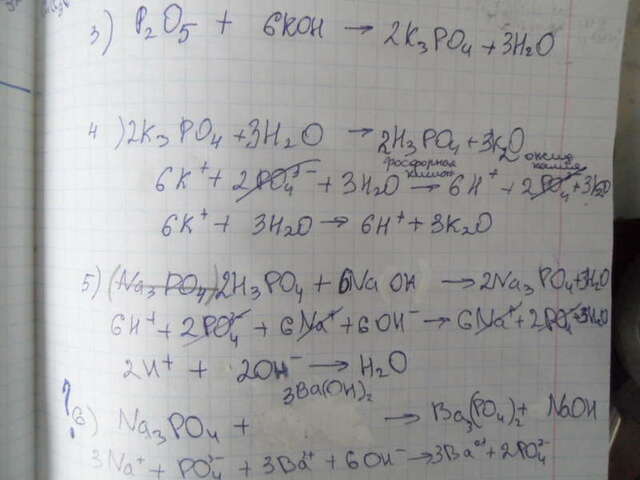 3) P₂O₅ + 6KOH → 2K₃PO₄ + 3H₂O
4) 2K₃PO₄ + 3H₂O → 2H₃PO₄ + 3K₂O
фосфорная кислота оксид калия
6K⁺ + 2PO₄³⁻ + 3H₂O → 6H⁺ + 2PO₄³⁻ + 3K₂O
6K⁺ + 3H₂O → 6H⁺ + 3K₂O
5) (Na₃PO₄) 2H₃PO₄ + 6NaOH → 2Na₃PO₄ + 3H₂O
6H⁺ + 2PO₄³⁻ + 6Na⁺ + 6OH⁻ → 6Na⁺ + 2PO₄³⁻ + 3H₂O
2H⁺ + 2OH⁻ → H₂O
? 6) Na₃PO₄ + 3Ba(OH)₂ → Ba₃(PO₄)₂ + NaOH
3Na⁺ + PO₄³⁻ + 3Ba²⁺ + 6OH⁻ → 3Ba²⁺ + 2PO₄³⁻